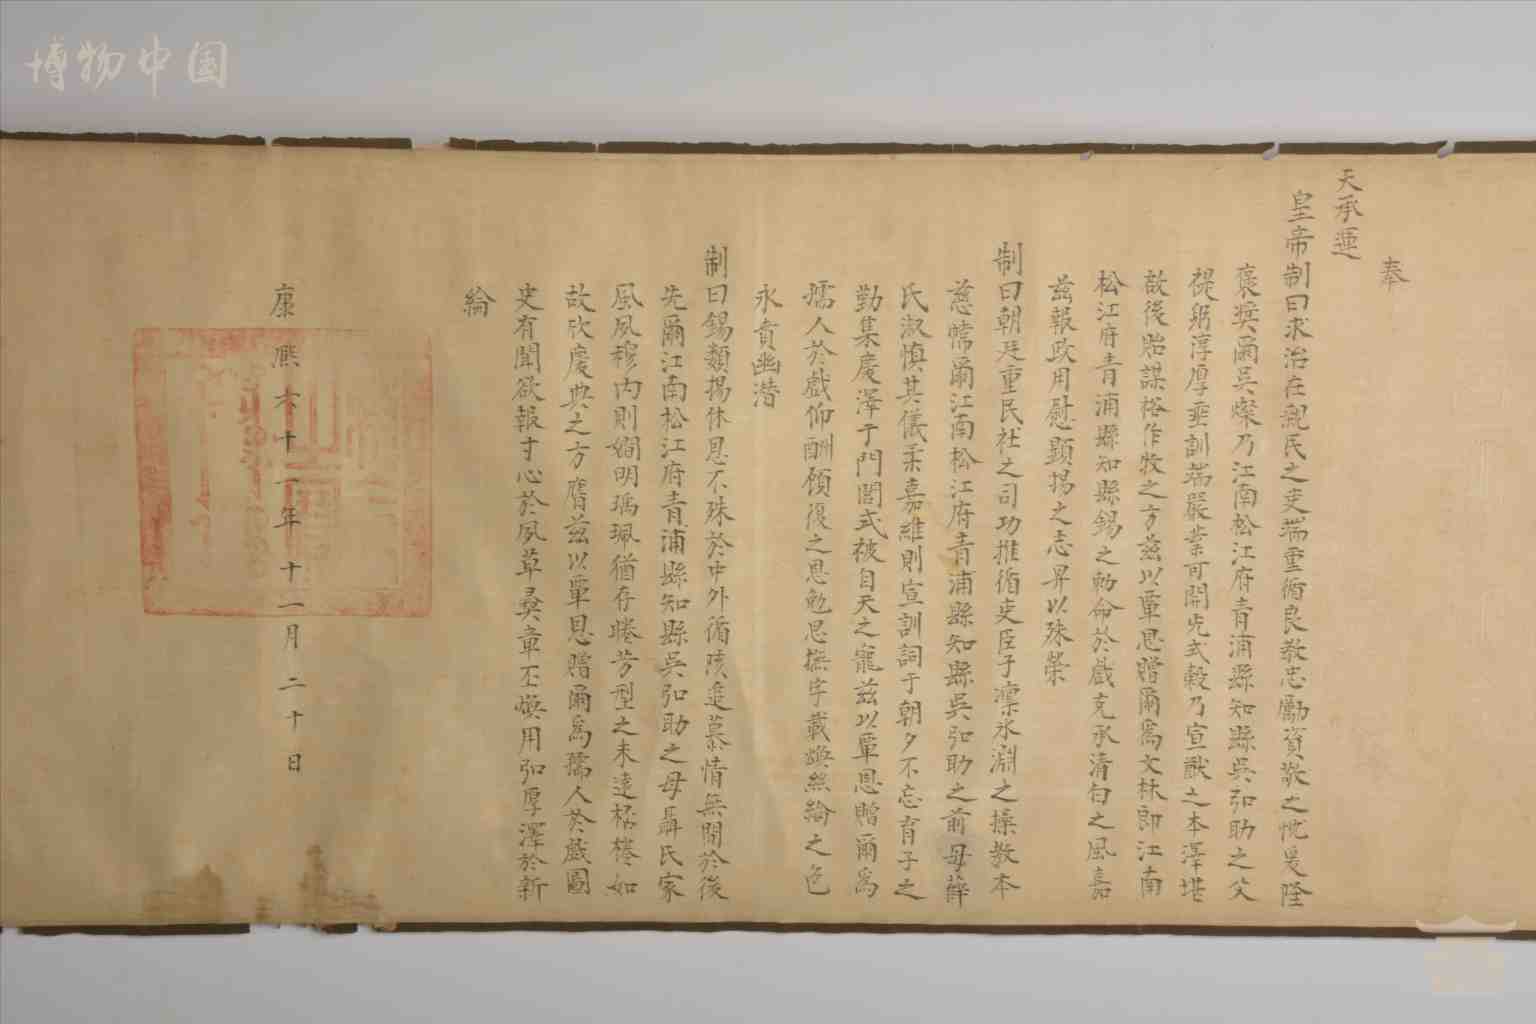 博物中国
奉
天承運
皇帝制曰求治在親民之吏端重循良教忠勵資敬之忱爰隆
褒獎爾吳燦乃江南松江府青浦縣知縣吳弘助之父
禔躬淳厚垂訓端嚴業可開先式穀乃宣猷之本澤堪
啟後貽謀裕作牧之方茲以覃恩贈爾爲文林郎江南
松江府青浦縣知縣錫之勅命於戲克承清白之風嘉
茲報政用慰顯揚之志昇以殊榮
制曰朝廷重民社之司功推循吏臣子凛冰淵之操教本
慈幃爾江南松江府青浦縣知縣吳弘助之前母薛
氏淑慎其儀柔嘉維則宣訓詞于朝夕不忘育子之
勤集慶澤于門閭式被自天之寵茲以覃恩贈爾爲
孺人於戲仰酬顧復之恩勉思撫字載煥絲綸之色
永賁幽潛
制曰錫類揚休恩不殊於中外循陔追慕情無間於後
先爾江南松江府青浦縣知縣吳弘助之母聶氏家
風夙穆内則嫺明瑀珮猶存睠芳型之未遠桮棬如
故欣慶典之方膺茲以覃恩贈爾爲孺人於戲圖
史有聞欲報寸心於夙草彝章丕煥用弘厚澤於新
綸
康熙六十一年十一月二十日